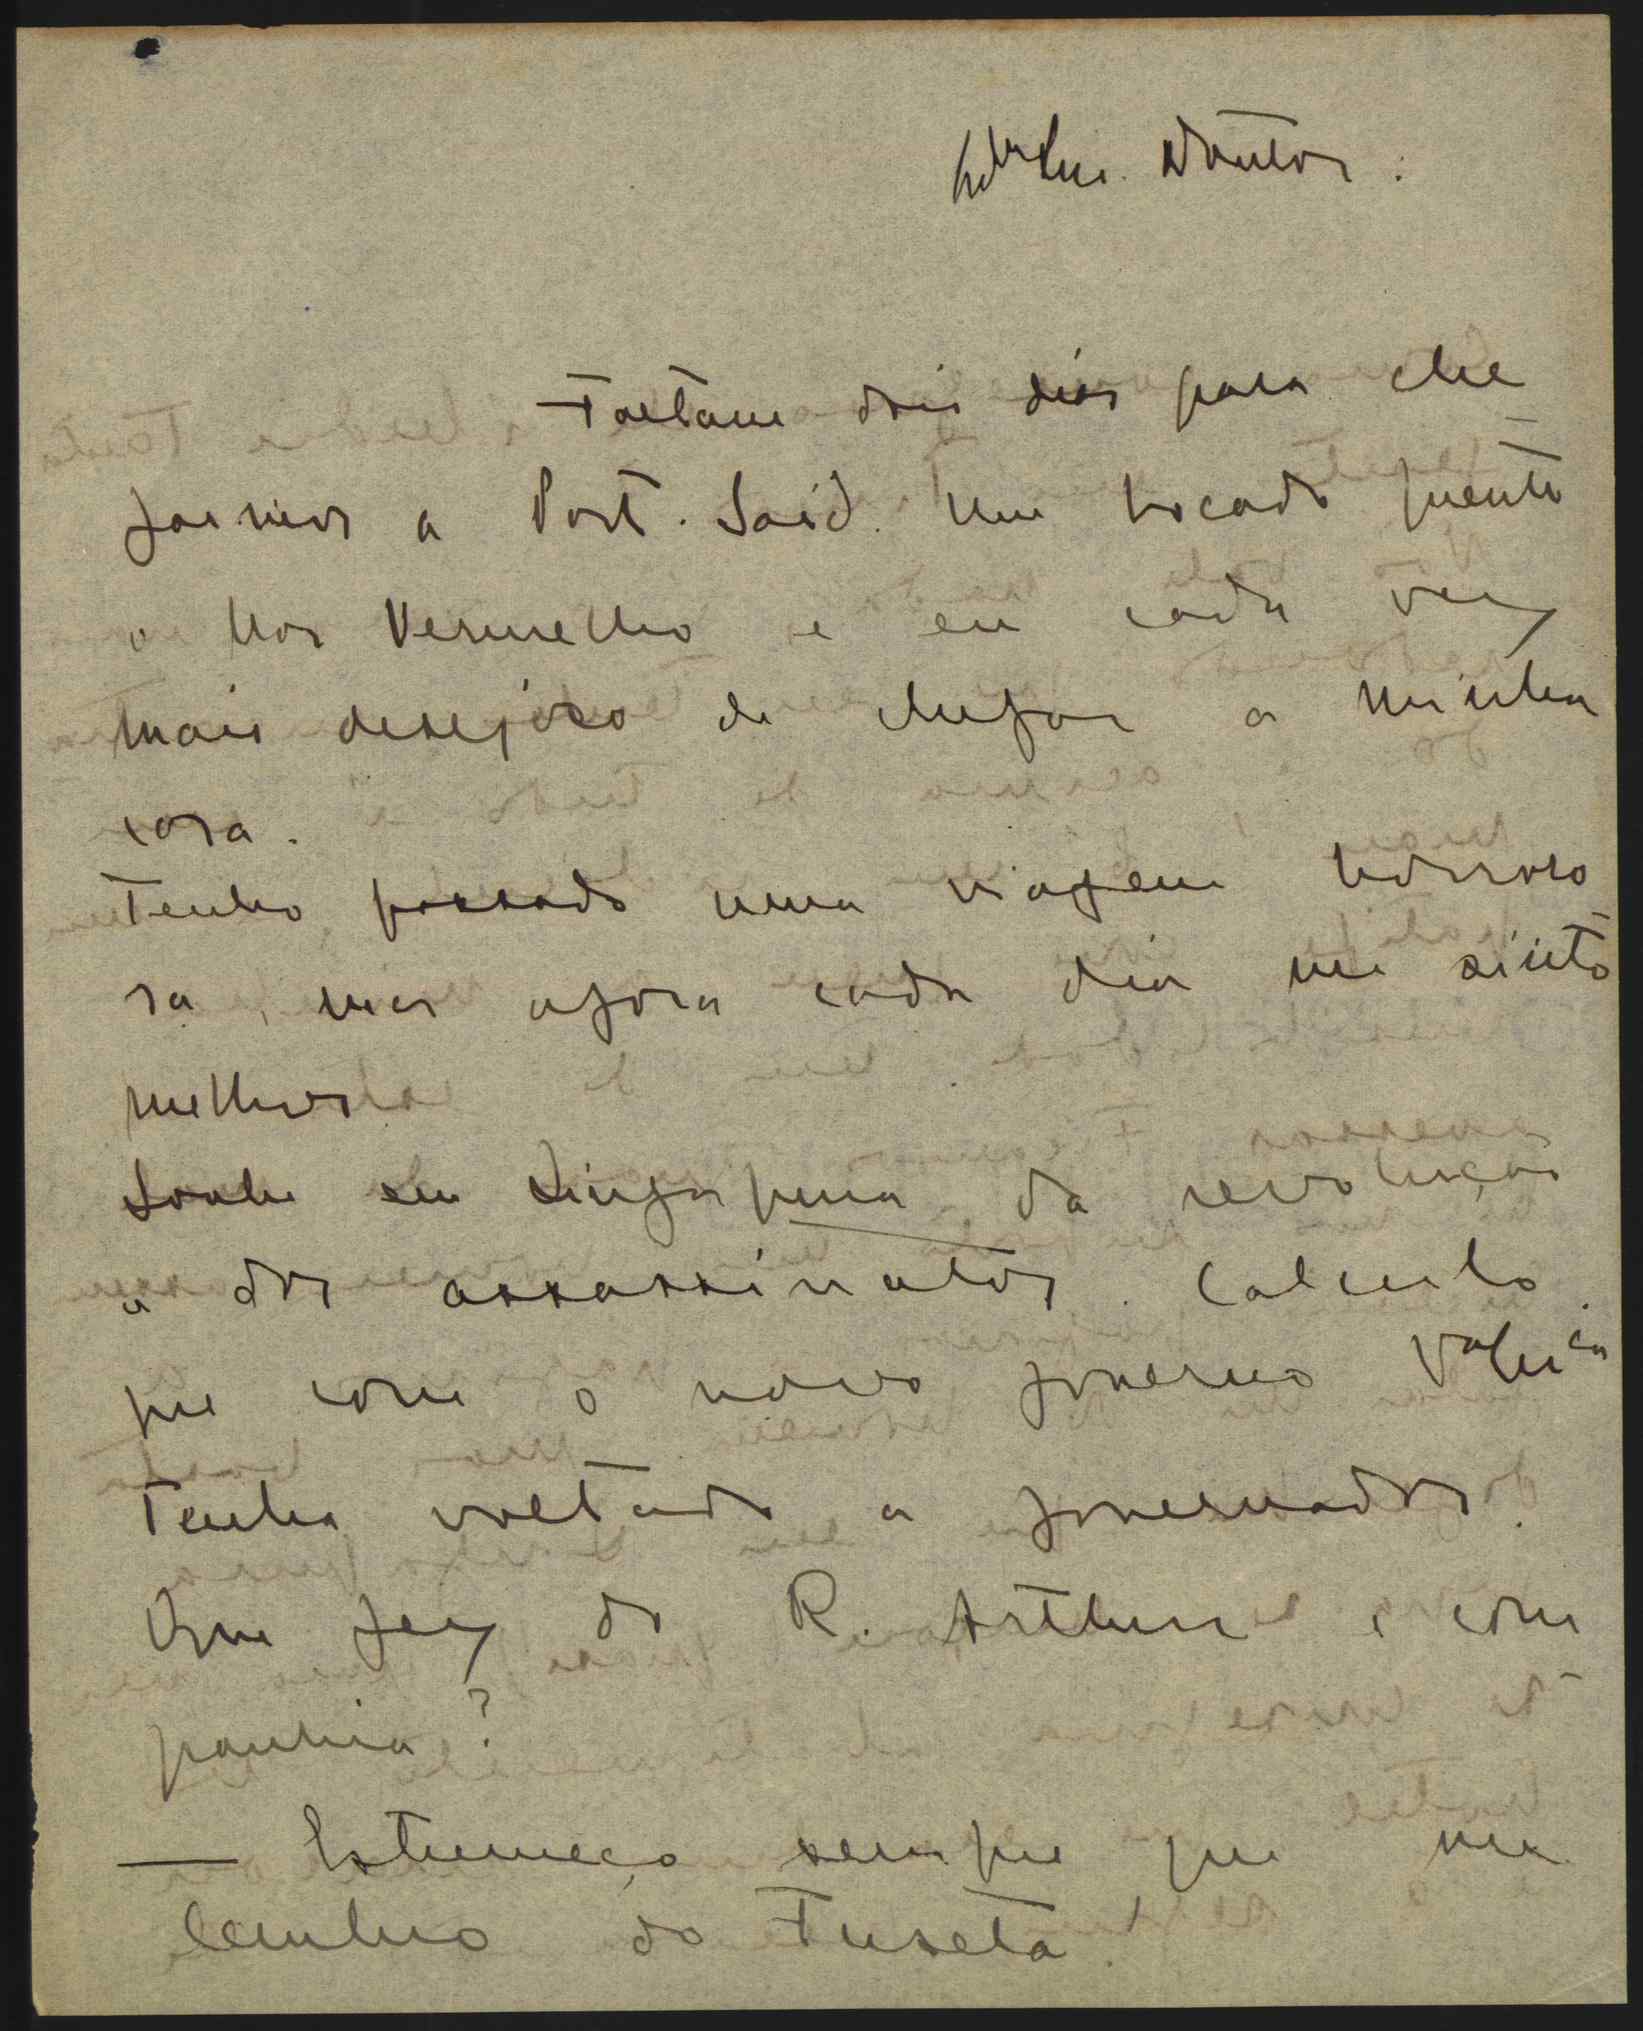 Doutor:
Faltam dois dias para che-
garmos a Port. Said. Um bocado quente
o Mar Vermelho e eu cada vez
mais desejoso de chegar a minha
casa.
Tenho passado uma viagem horroro
sa, mas agora cada dia me sinto
melhor
Soube em Singapura da revolução
e dos assassinatos. Calculo
que com o novo governo V. Ex.cia
tenha voltado a governador.
Que fez do R. Arthur e com
panhia?
— Estremeço sempre que me
lembro do Fuseta.